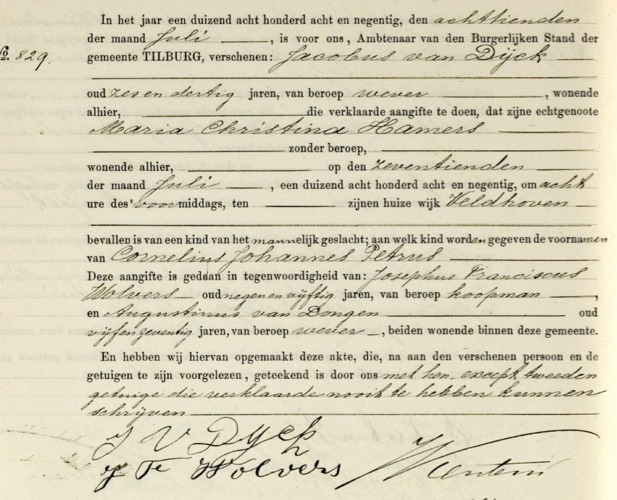 In het jaar een duizend acht honderd acht en negentig, den achttienden
der maand Juli, is voor ons, Ambtenaar van den Burgerlijken Stand der
No. 829.
gemeente TILBURG, verschenen: Jacobus van Dijck
oud zes en dertig jaren, van beroep wever, wonende
alhier, die verklaarde aangifte te doen, dat zijne echtgenoote
Maria Christina Hamers
zonder beroep,
wonende alhier, op den zeventienden
der maand Juli, een duizend acht honderd acht en negentig, om acht
ure des voormiddags, ten zijnen huize wijk Veldhoven
bevallen is van een kind van het mannelijk geslacht; aan welk kind worden gegeven de voornamen
van Cornelius Johannes Petrus
Deze aangifte is gedaan in tegenwoordigheid van: Josephus Franciscus
Wolvers oud negen en vijftig jaren, van beroep koopman,
en Augustinus van Dongen oud
vijf en zeventig jaren, van beroep wever, beiden wonende binnen deze gemeente.
En hebben wij hiervan opgemaakt deze akte, die, na aan den verschenen persoon en de
getuigen te zijn voorgelezen, geteekend is door ons met hen, except tweeden
getuige die verklaarde nooit te hebben kunnen
schrijven
J V Dyck
J F Wolvers